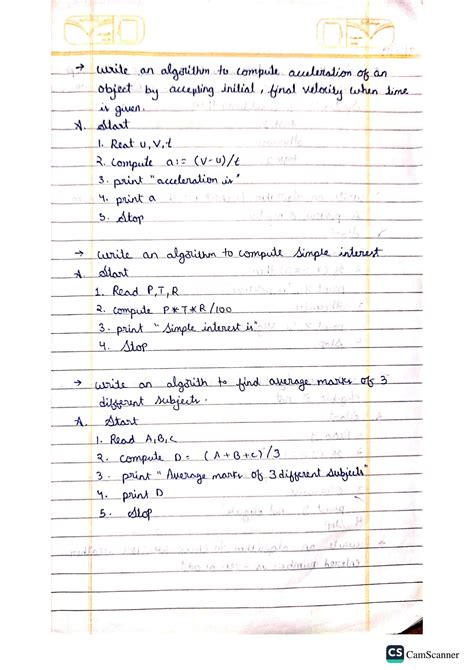 → write an algorithm to compute acceleration of an
object by accepting initial, final velocity when time
is given.
A. Start
1. Reat u, v, t
2. compute a := (v-u)/t
3. print "acceleration is"
4. print a
5. Stop
→ write an algorithm to compute simple interest
A. Start
1. Read P, T, R
2. compute P*T*R/100
3. print "Simple interest is"
4. Stop
→ write an algorith to find average marks of 3
different subjects.
A. Start
1. Read A, B, C
2. compute D = (A+B+C)/3
3. print "Average marks of 3 different subjects"
4. print D
5. Stop
CS CamScanner